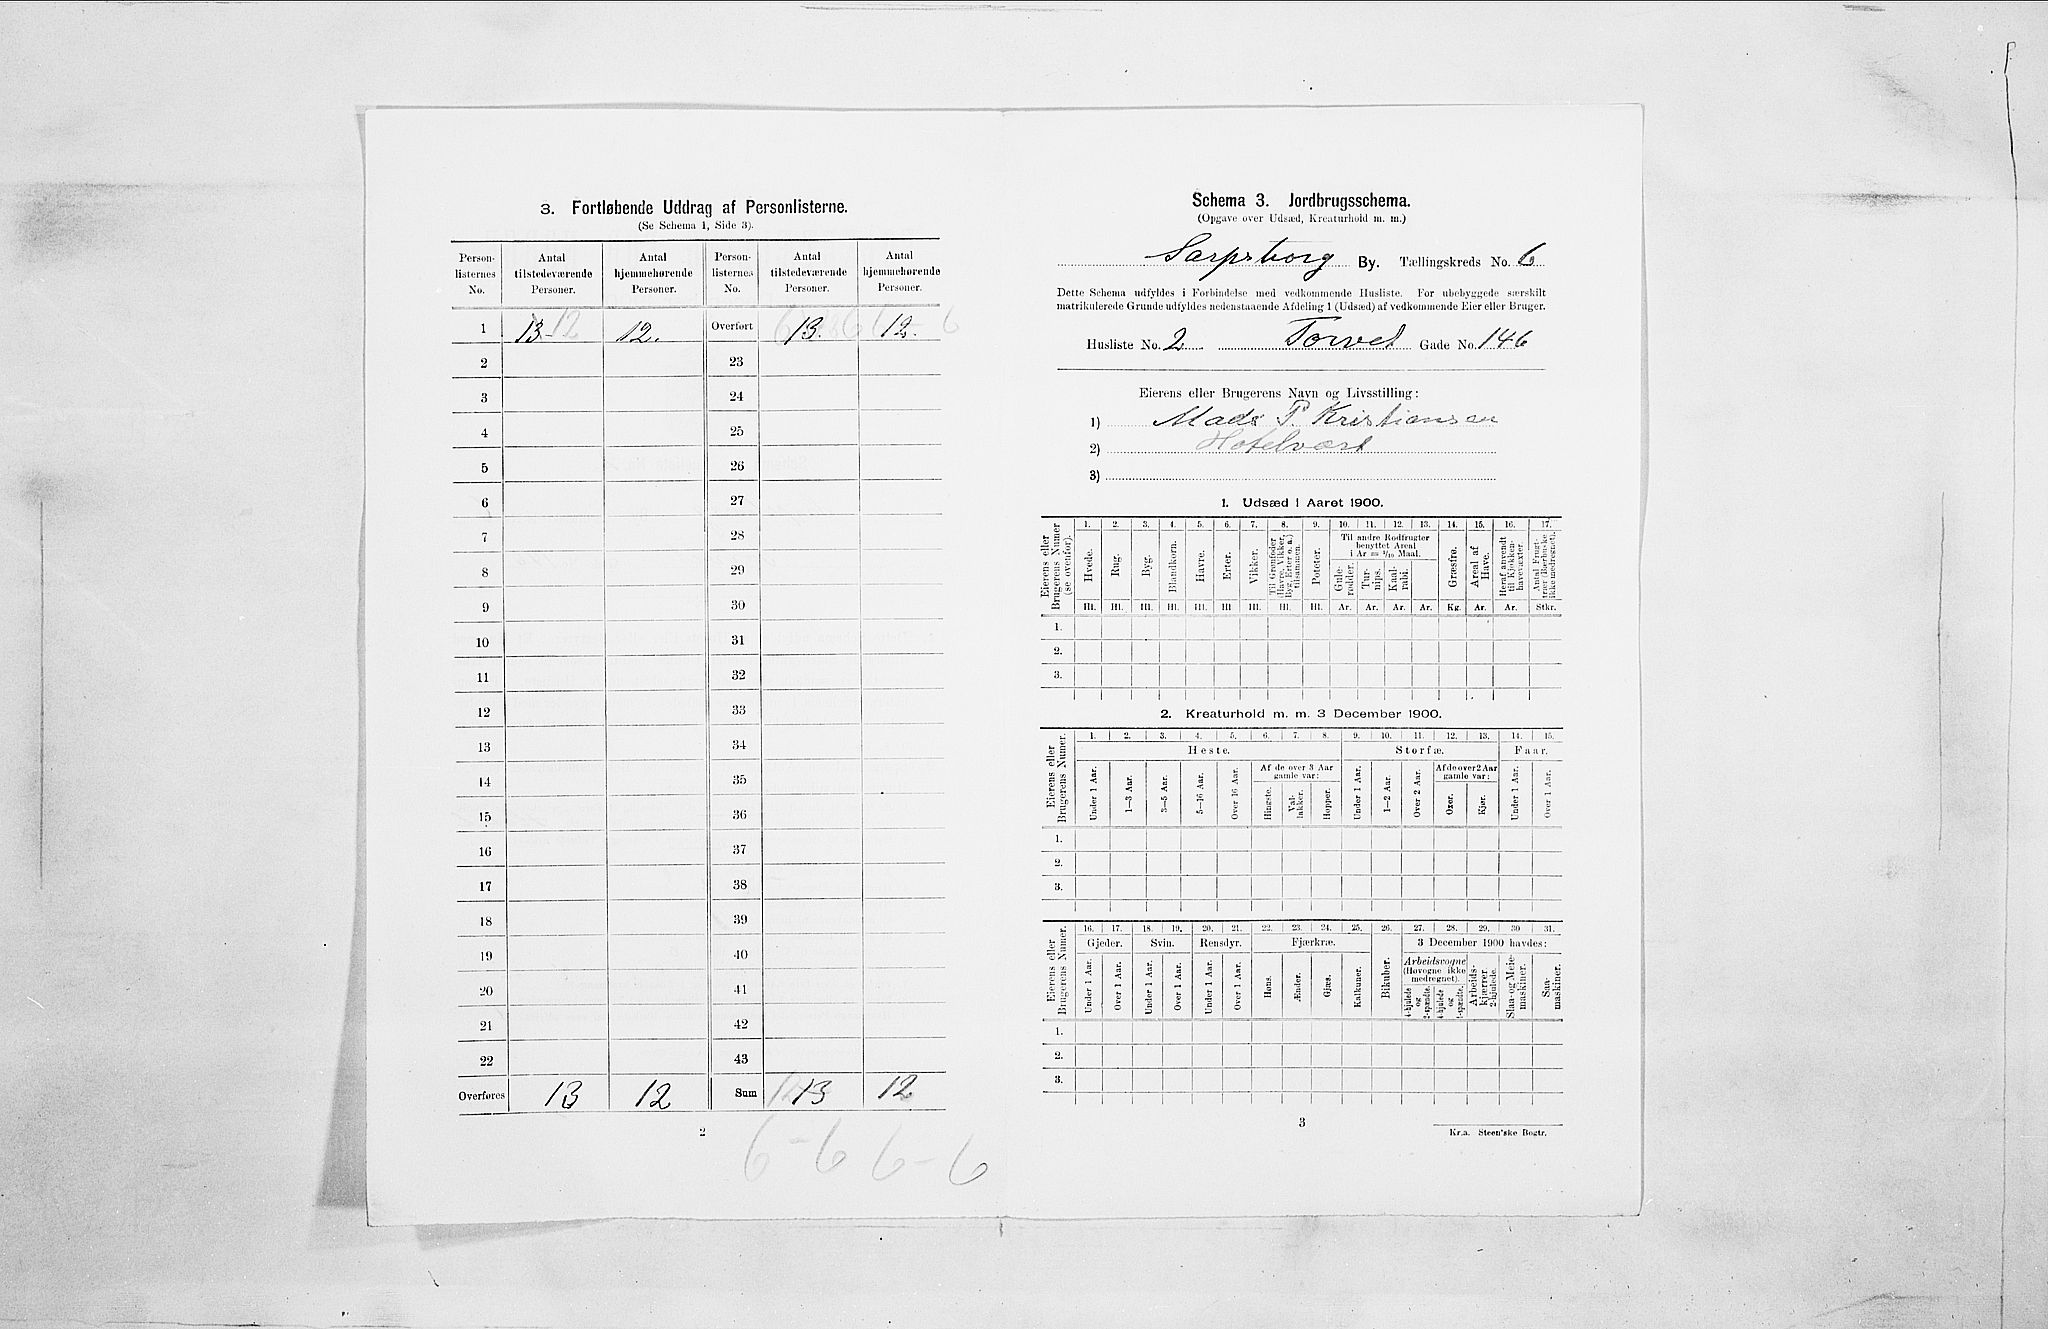 3. Fortløbende Uddrag af Personlisterne.
(Se Schema 1, Side 3).
Person-listernes No. Antal tilstedeværende Personer. Antal hjemmehørende Personer. Person-listernes No. Antal tilstedeværende Personer. Antal hjemmehørende Personer.
1 13 12 12. Overført 13. 12.
2 23
3 24
4 25
5 26
6 27
7 28
8 29
9 30
10 31
11 32
12 33
13 34
14 35
15 36
16 37
17 38
18 39
19 40
20 41
21 42
22 43
Overføres 13 12 Sum 13 12
2
6-6 6-6
Schema 3. Jordbrugsschema.
(Opgave over Udsæd, Kreaturhold m. m.)
Sarpsborg By. Tællingskreds No. 6
Dette Schema udfyldes i Forbindelse med vedkommende Husliste. For ubebyggede særskilt
matrikulerede Grunde udfyldes nedenstaaende Afdeling 1 (Udsæd) af vedkommende Eier eller Bruger.
Husliste No. 2 Torvet Gade No. 146
Eierens eller Brugerens Navn og Livsstilling:
1) Mads P. Kristiansen
2) Hotelvært
3)
1. Udsæd i Aaret 1900.
Eierens eller Brugerens Numer (se ovenfor).
1. 2. 3. 4. 5. 6. 7. 8. 9. 10. 11. 12. 13. 14. 15. 16. 17.
Hvede. Rug. Byg. Blandkorn. Havre. Erter. Vikker. Til Grønfoder (Havre, Vikker, Byg, Erter o. a.) tilsammen. Poteter. Til andre Rodfrugter benyttet Areal i Ar = 1/10 Maal. Gule-rødder. Tur-nips. Kaal-rabi. Græsfrø. Areal af Have. Heraf anvendt til Kjøkken-havevæxter. Antal Frugt-trær (Bærbuske ikke medregnet).
Hl. Hl. Hl. Hl. Hl. Hl. Hl. Hl. Hl. Ar. Ar. Ar. Ar. Kg. Ar. Ar. Stkr.
1.
2.
3.
2. Kreaturhold m. m. 3 December 1900.
Eierens eller Brugerens Numer.
1. 2. 3. 4. 5. 6. 7. 8. 9. 10. 11. 12. 13. 14. 15.
Heste. Storfæ. Faar.
Under 1 Aar. 1—3 Aar. 3—5 Aar. 5—16 Aar. Over 16 Aar. Af de over 3 Aar gamle var: Hingste. Val-lakker. Hopper. Under 1 Aar. 1—2 Aar. Over 2 Aar. Af de over 2 Aar gamle var: Oxer. Kjør. Under 1 Aar. Over 1 Aar.
1.
2.
3.
Eierens eller Brugerens Numer.
16. 17. 18. 19. 20. 21. 22. 23. 24. 25. 26. 27. 28. 29. 30 31.
Gjeder. Svin. Rensdyr. Fjærkræ. 3 December 1900 havdes:
Under 1 Aar. Over 1 Aar. Under 1 Aar. Over 1 Aar. Under 1 Aar. Over 1 Aar. Høns. Ænder. Gjæs. Kalkuner. Bikuber. Arbeidsvogne (Hovogne ikke medregnet). 4-hjulede og 2-spændte. 4-hjulede og 1-spædte. Arbeids-kjærrer 2-hjulede. Slaa- og Meie-maskiner. Saa-maskiner.
1.
2.
3.
3
Kr.a. Steen'ske Bogtr.